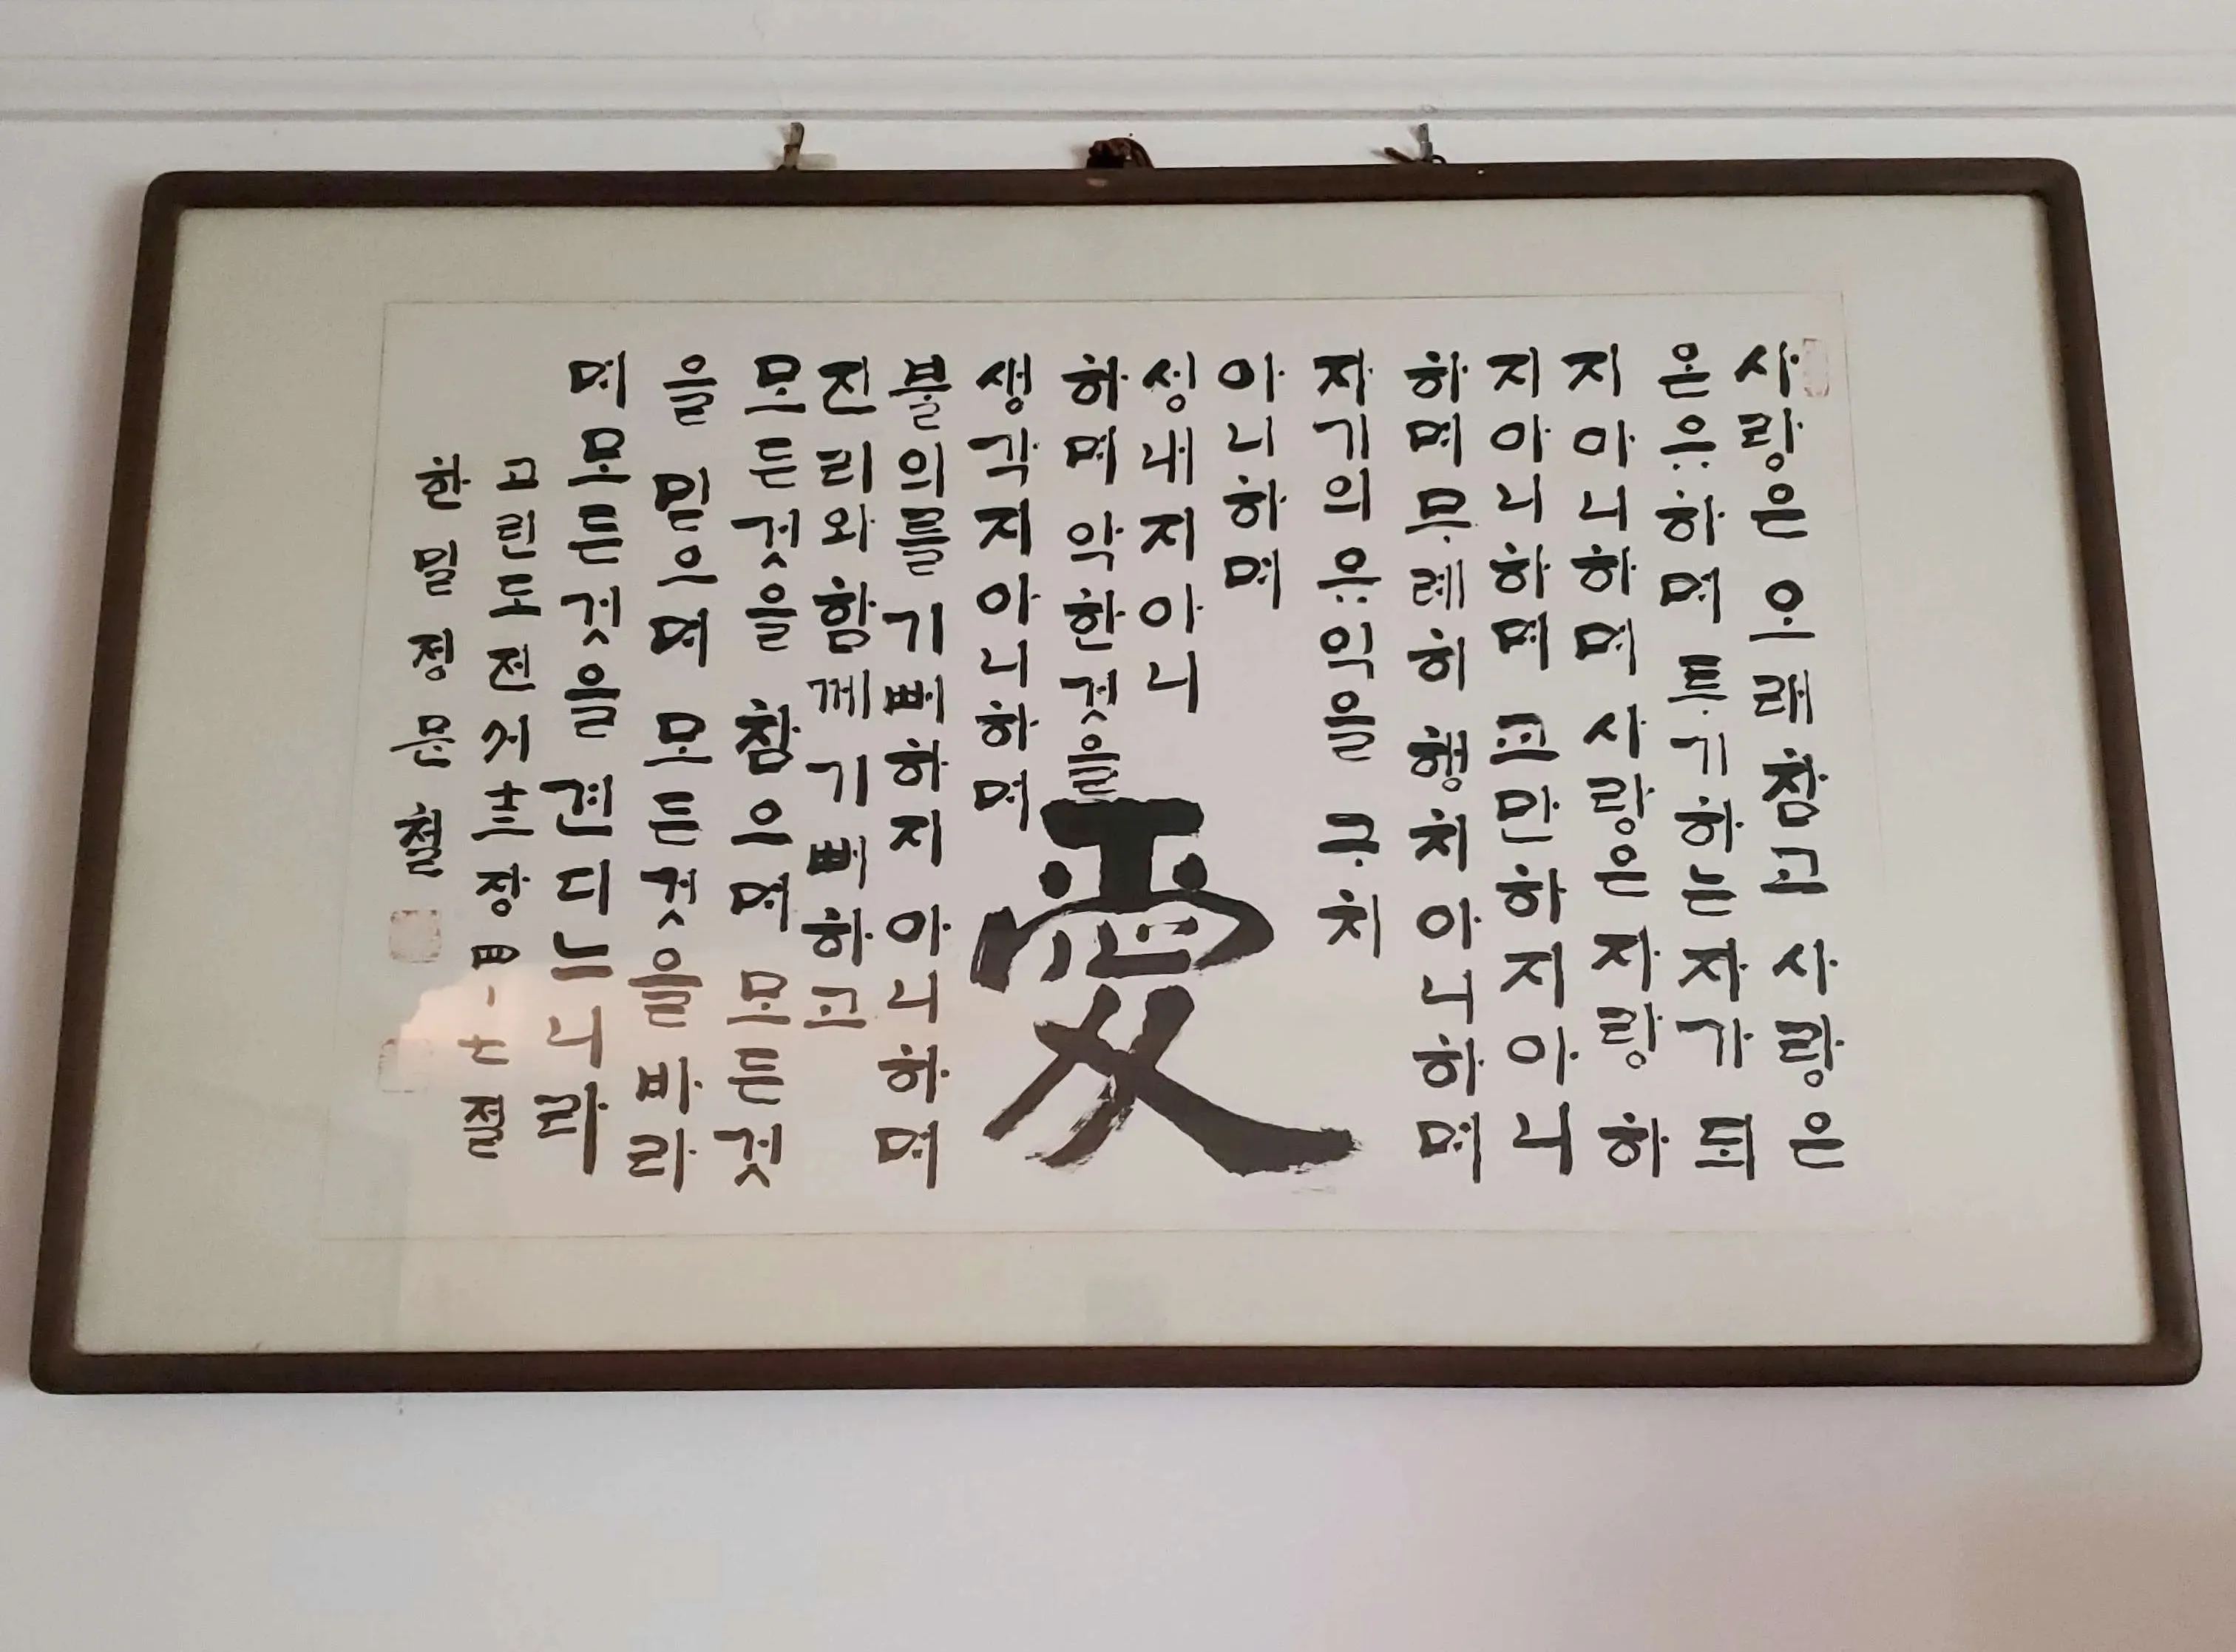 사랑은 오래 참고 사랑은
온유하며 투기하는 자가 되
지 아니하며 사랑은 자랑하
지 아니하며 교만하지 아니
하며 무례히 행치 아니하며
자기의 유익을 구치
아니하며
성내지 아니
하며 악한 것을
생각지 아니하며
愛
불의를 기뻐하지 아니하며
진리와 함께 기뻐하고
모든 것을 참으며 모든 것
을 믿으며 모든 것을 바라
며 모든 것을 견디느니라
고린도전서 十三장 四-七절
한밀 정문철